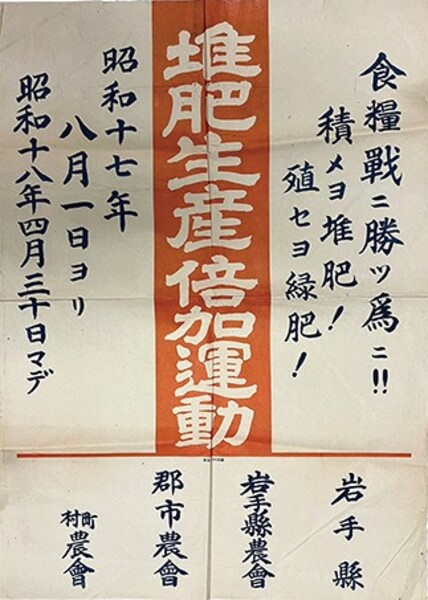 食糧戰ニ勝ツ爲ニ!!
積メヨ堆肥!
殖セヨ緑肥!
堆肥生産倍加運動
昭和十七年
八月一日ヨリ
昭和十八年四月三十日マデ
岩手縣
岩手縣農會
郡市農會
町村農會